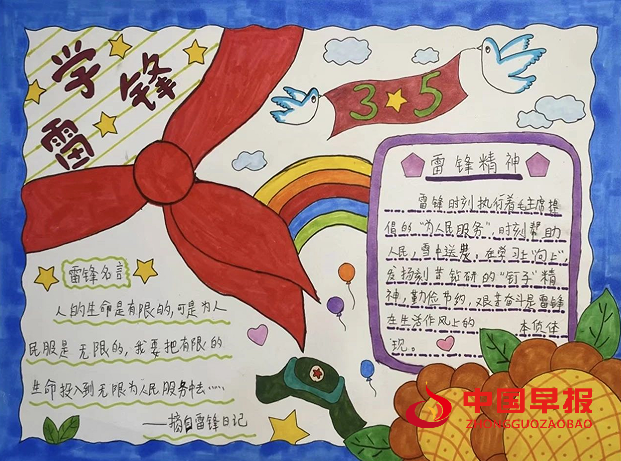 学
雷
锋
3 5
雷锋精神
雷锋时刻执行着毛主席提
倡的“为人民服务”,时刻帮助
人民,雪中送農,在学习上“向上”,
发扬刻苦钻研的“钉子”精
神,勤俭节约,艰辛奋斗是雷锋
在生活作风上的 本质体
现。
雷锋名言
人的生命是有限的,可是为人
民服是无限的,我要把有限的
生命投入到无限为人民服务中去……
——摘自雷锋日记
中国早报
ZHONGGUOZAOBAO